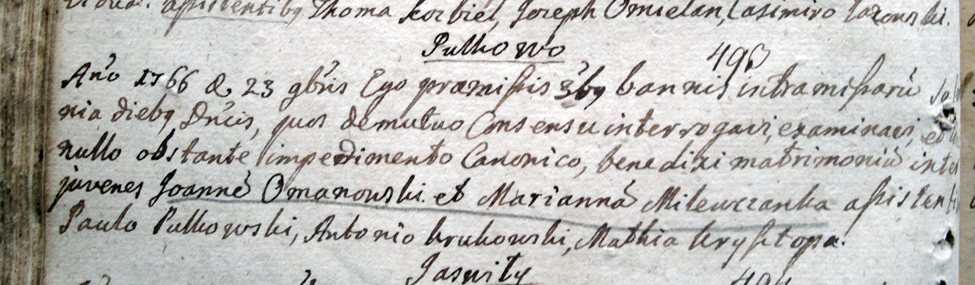 assistentibq Thoma Korbiel, Joseph Omielan, Casimiro
Pulkowo 493
Año 1766 d. 23 gbris Ego præmissis 3bq bannis intra missarũ
nia diebq Dñcis, quos de mutuo Consensu interrogavi, examinavi, et
nullo obstante impedimento Canonico, benedixi matrimoniũ inter
juvenes Joannẽ Omanowski et Mariannã Milewczanka assisten
Paulo Pulkowski, Antonio Krukowski, Mathia Krysstopa.
Jaswity 494